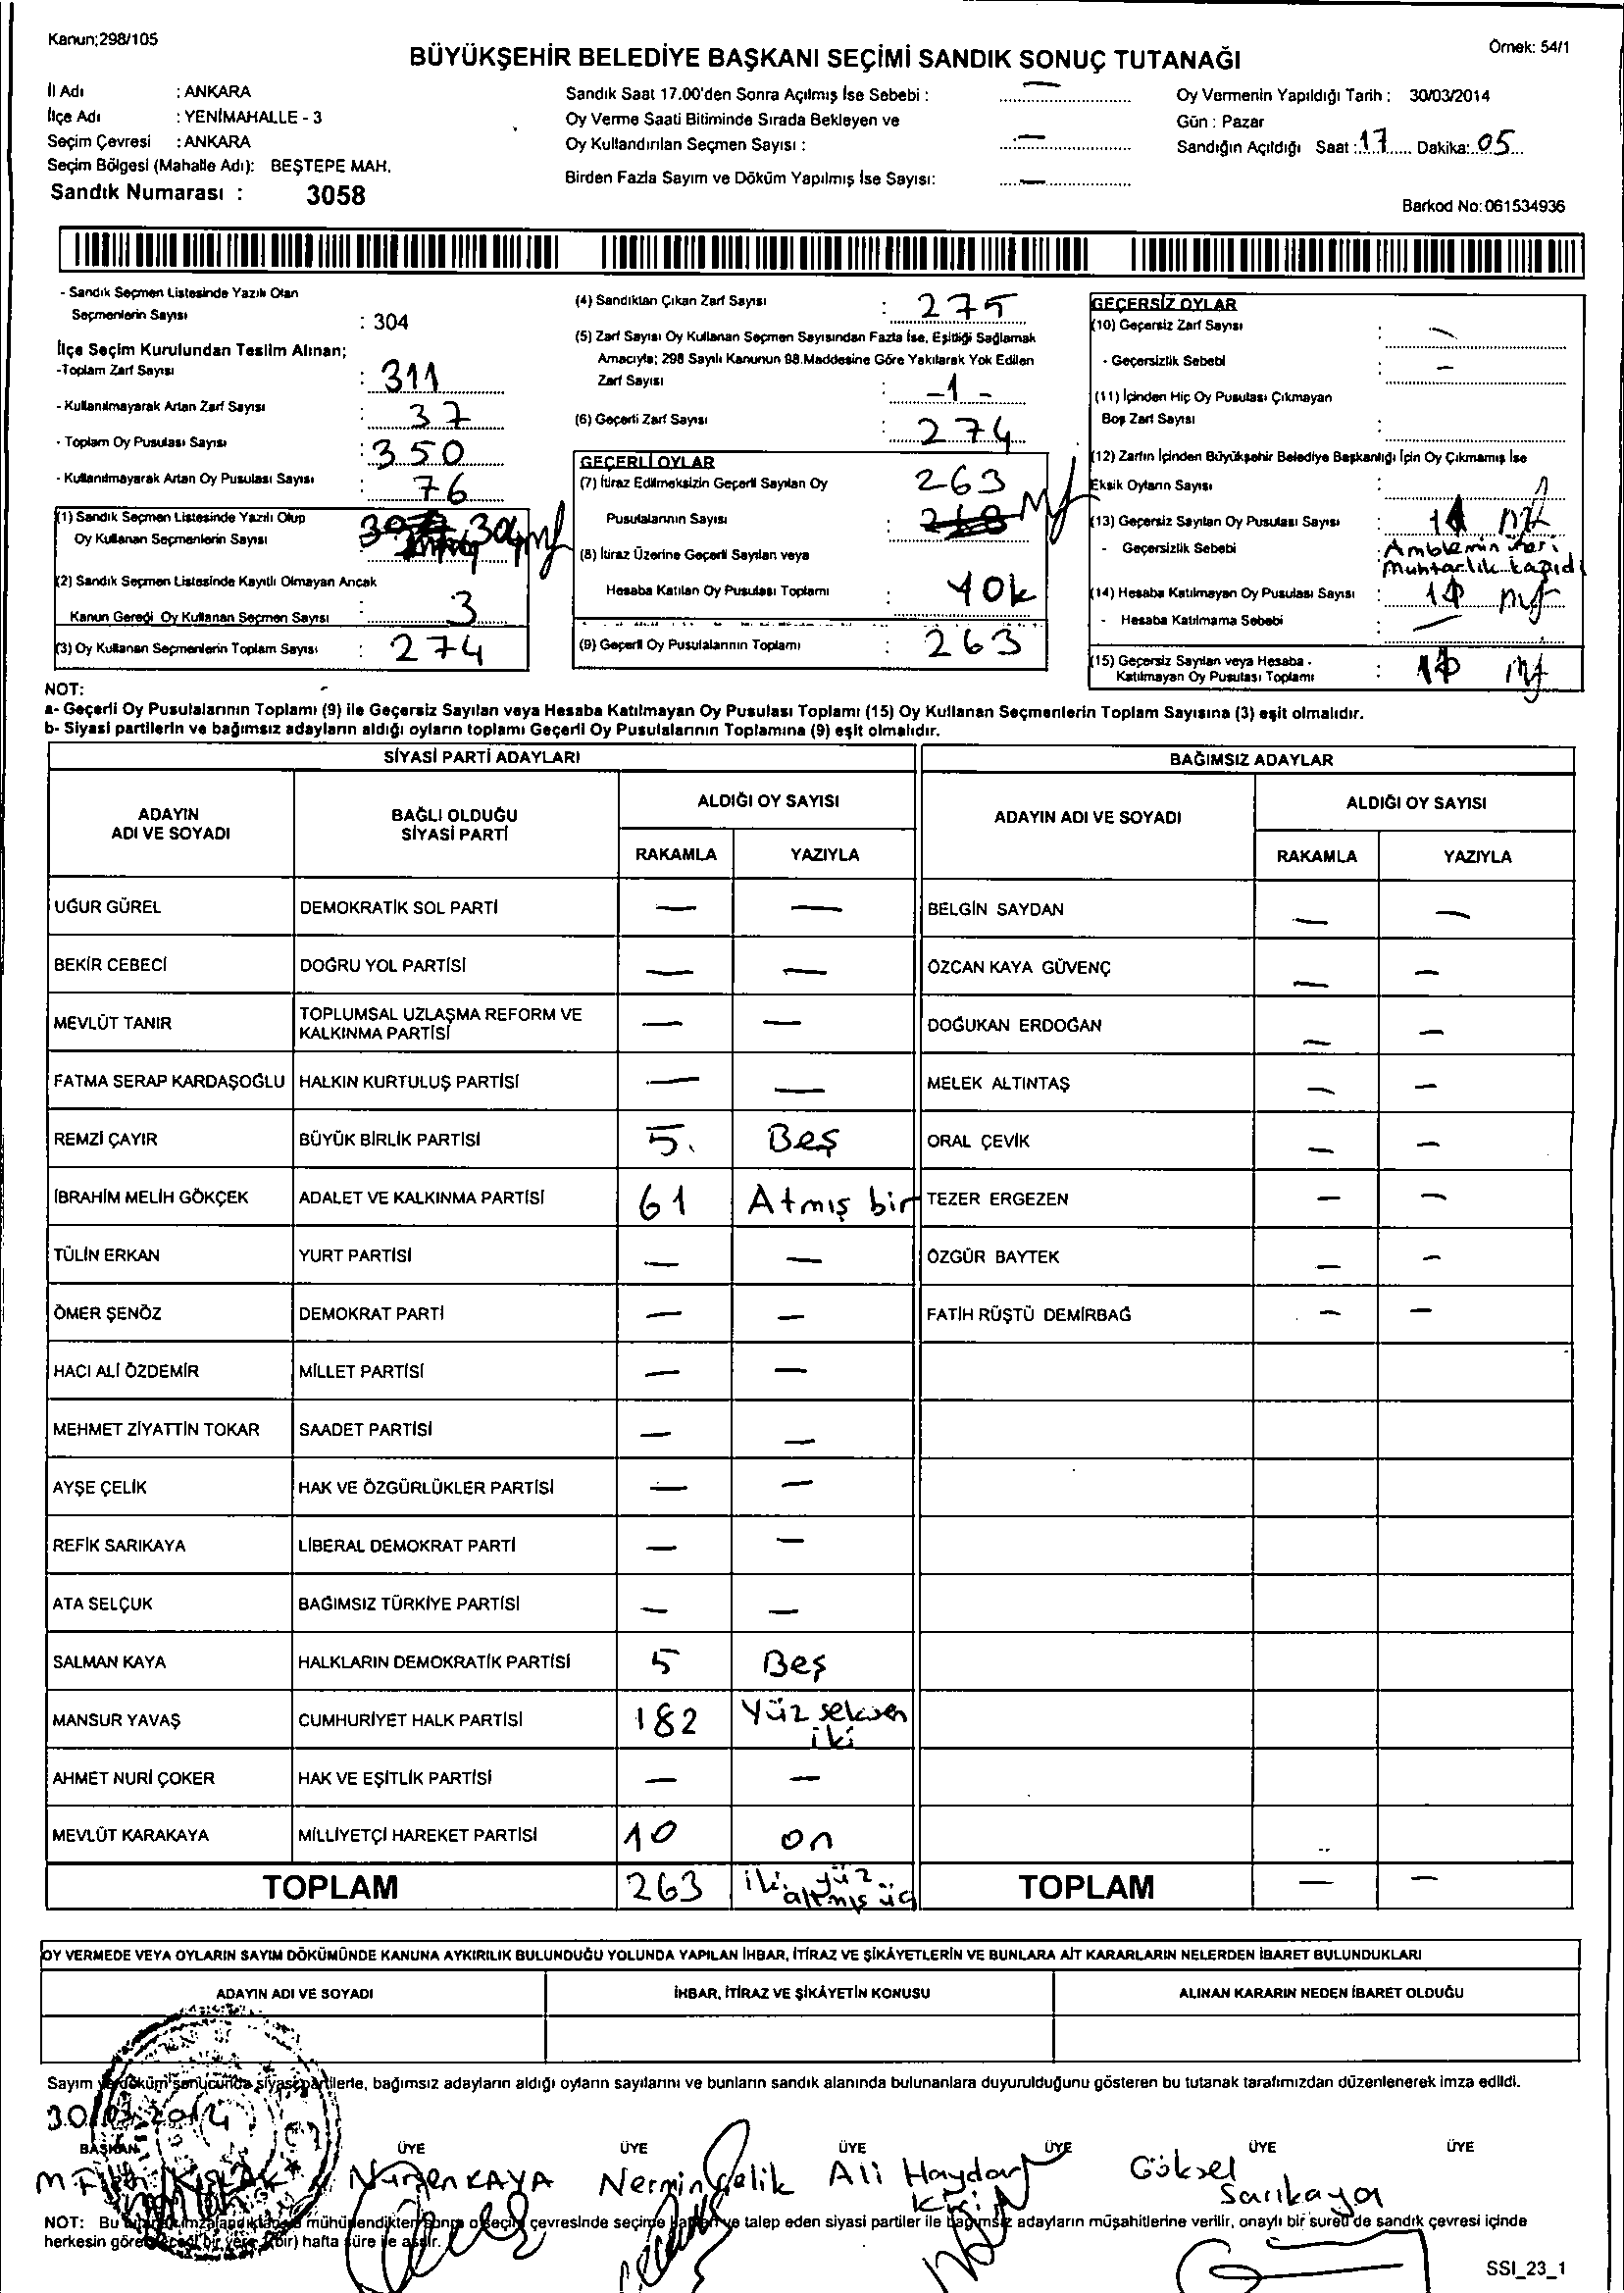 Kanun;298/105
Örnek: 54/1
BÜYÜKŞEHİR BELEDİYE BAŞKANI SEÇİMİ SANDIK SONUÇ TUTANAĞI
İl Adı : ANKARA
İlçe Adı : YENİMAHALLE - 3
Seçim Çevresi : ANKARA
Seçim Bölgesi (Mahalle Adı): BEŞTEPE MAH.
Sandık Numarası : 3058
Sandık Saat 17.00'den Sonra Açılmış İse Sebebi : —
Oy Verme Saati Bitiminde Sırada Bekleyen ve
Oy Kullandırılan Seçmen Sayısı : —
Birden Fazla Sayım ve Döküm Yapılmış İse Sayısı: —
Oy Vermenin Yapıldığı Tarih : 30/03/2014
Gün : Pazar
Sandığın Açıldığı Saat : 17 Dakika: 05
Barkod No: 061534936
- Sandık Seçmen Listesinde Yazılı Olan
Seçmenlerin Sayısı : 304
İlçe Seçim Kurulundan Teslim Alınan;
-Toplam Zarf Sayısı : 311
- Kullanılmayarak Artan Zarf Sayısı : 37
- Toplam Oy Pusulası Sayısı : 350
- Kullanılmayarak Artan Oy Pusulası Sayısı : 76
(1) Sandık Seçmen Listesinde Yazılı Olup
Oy Kullanan Seçmenlerin Sayısı : 304
(2) Sandık Seçmen Listesinde Kayıtlı Olmayan Ancak
Kanun Gereği Oy Kullanan Seçmen Sayısı : 3
(3) Oy Kullanan Seçmenlerin Toplam Sayısı : 274
(4) Sandıktan Çıkan Zarf Sayısı : 275
(5) Zarf Sayısı Oy Kullanan Seçmen Sayısından Fazla İse, Eşitliği Sağlamak
Amacıyla; 298 Sayılı Kanunun 98.Maddesine Göre Yakılarak Yok Edilen
Zarf Sayısı : -1-
(6) Geçerli Zarf Sayısı : 274
GEÇERLİ OYLAR
(7) İtiraz Edilmeksizin Geçerli Sayılan Oy 263
Pusulalarının Sayısı :
(8) İtiraz Üzerine Geçerli Sayılan veya
Hesaba Katılan Oy Pusulası Toplamı : Yok
(9) Geçerli Oy Pusulalarının Toplamı : 263
GEÇERSİZ OYLAR
(10) Geçersiz Zarf Sayısı : —
- Geçersizlik Sebebi : —
(11) İçinden Hiç Oy Pusulası Çıkmayan
Boş Zarf Sayısı :
(12) Zarfın İçinden Büyükşehir Belediye Başkanlığı İçin Oy Çıkmamış İse
Eksik Oyların Sayısı :
(13) Geçersiz Sayılan Oy Pusulası Sayısı :
- Geçersizlik Sebebi : Amblemin
Muhtarlık
(14) Hesaba Katılmayan Oy Pusulası Sayısı :
- Hesaba Katılmama Sebebi : —
(15) Geçersiz Sayılan veya Hesaba -
Katılmayan Oy Pusulası Toplamı :
NOT:
a- Geçerli Oy Pusulalarının Toplamı (9) ile Geçersiz Sayılan veya Hesaba Katılmayan Oy Pusulası Toplamı (15) Oy Kullanan Seçmenlerin Toplam Sayısına (3) eşit olmalıdır.
b- Siyasi partilerin ve bağımsız adayların aldığı oyların toplamı Geçerli Oy Pusulalarının Toplamına (9) eşit olmalıdır.
SİYASİ PARTİ ADAYLARI
BAĞIMSIZ ADAYLAR
ADAYIN ADI VE SOYADI
BAĞLI OLDUĞU SİYASİ PARTİ
ALDIĞI OY SAYISI
RAKAMLA YAZIYLA
ADAYIN ADI VE SOYADI
ALDIĞI OY SAYISI
RAKAMLA YAZIYLA
UĞUR GÜREL DEMOKRATİK SOL PARTİ — — BELGİN SAYDAN — —
BEKİR CEBECİ DOĞRU YOL PARTİSİ — — ÖZCAN KAYA GÜVENÇ — —
MEVLÜT TANIR TOPLUMSAL UZLAŞMA REFORM VE KALKINMA PARTİSİ — — DOĞUKAN ERDOĞAN — —
FATMA SERAP KARDAŞOĞLU HALKIN KURTULUŞ PARTİSİ — — MELEK ALTINTAŞ — —
REMZİ ÇAYIR BÜYÜK BİRLİK PARTİSİ 5. Beş ORAL ÇEVİK — —
İBRAHİM MELİH GÖKÇEK ADALET VE KALKINMA PARTİSİ 61 Atmış bir TEZER ERGEZEN — —
TÜLİN ERKAN YURT PARTİSİ — — ÖZGÜR BAYTEK — —
ÖMER ŞENÖZ DEMOKRAT PARTİ — — FATİH RÜŞTÜ DEMİRBAĞ — —
HACI ALİ ÖZDEMİR MİLLET PARTİSİ — —
MEHMET ZİYATTİN TOKAR SAADET PARTİSİ — —
AYŞE ÇELİK HAK VE ÖZGÜRLÜKLER PARTİSİ — —
REFİK SARIKAYA LİBERAL DEMOKRAT PARTİ — —
ATA SELÇUK BAĞIMSIZ TÜRKİYE PARTİSİ — —
SALMAN KAYA HALKLARIN DEMOKRATİK PARTİSİ 5 Beş
MANSUR YAVAŞ CUMHURİYET HALK PARTİSİ 182 Yüz seksen iki
AHMET NURİ ÇOKER HAK VE EŞİTLİK PARTİSİ — —
MEVLÜT KARAKAYA MİLLİYETÇİ HAREKET PARTİSİ 10 on
TOPLAM 263 iki yüz altmış üç TOPLAM — —
OY VERMEDE VEYA OYLARIN SAYIM DÖKÜMÜNDE KANUNA AYKIRILIK BULUNDUĞU YOLUNDA YAPILAN İHBAR, İTİRAZ VE ŞİKÂYETLERİN VE BUNLARA AİT KARARLARIN NELERDEN İBARET BULUNDUKLARI
ADAYIN ADI VE SOYADI İHBAR, İTİRAZ VE ŞİKÂYETİN KONUSU ALINAN KARARIN NEDEN İBARET OLDUĞU
Sayım ve döküm sonucunda siyasi partilerle, bağımsız adayların aldığı oyların sayılarını ve bunların sandık alanında bulunanlara duyurulduğunu gösteren bu tutanak tarafımızdan düzenlenerek imza edildi.
30/03/2014
BAŞKAN ÜYE ÜYE ÜYE ÜYE ÜYE ÜYE
Nurşen KAYA Nermin Çelik Ali Haydar Göksel
Sarıkaya
NOT: Bu mühürlendikten sonra o seçim çevresinde seçime ve talep eden siyasi partiler ile bağımsız adayların müşahitlerine verilir, onaylı bir sureti de sandık çevresi içinde
herkesin hafta süre ile asılır.
SSI_23_1